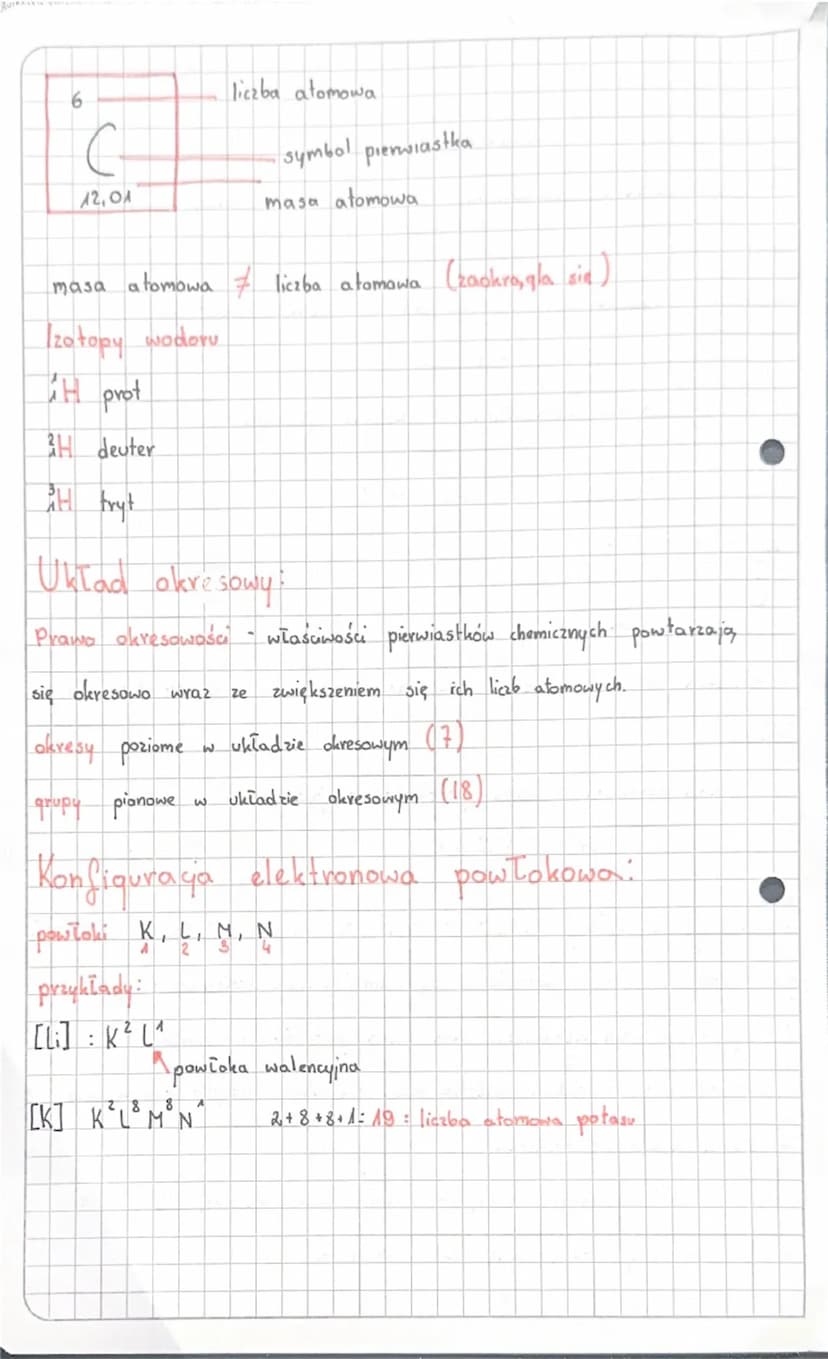 6 liczba atomowa
C symbol pierwiastka
12,01 masa atomowa
masa atomowa ≠ liczba atomowa (zaokrągla się)
Izotopy wodoru
¹₁H prot
²₁H deuter
³₁H tryt
Układ okresowy:
Prawo okresowości - właściwości pierwiastków chemicznych powtarzają
się okresowo wraz ze zwiększeniem się ich liczb atomowych.
okresy poziome w układzie okresowym (7)
grupy pionowe w układzie okresowym (18)
Konfiguracja elektronowa powłokowa:
powłoki K, L, M, N
1 2 3 4
przykłady:
[Li] : K² L¹
powłoka walencyjna
[K] K²L⁸M⁸N¹ 2+8+8+1=19 = liczba atomowa potasu